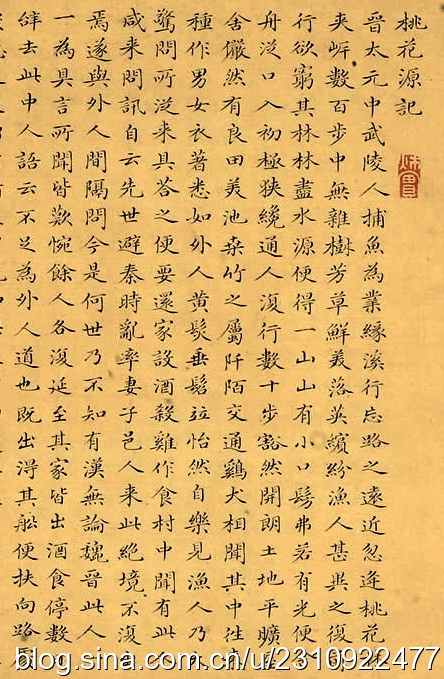 桃花源記
晉太元中武陵人捕魚為業緣溪行忘路之遠近忽逢桃花
夾岸數百步中無雜樹芳草鮮美落英繽紛漁人甚異之復前
行欲窮其林林盡水源便得一山山有小口髣弗若有光便
舟從口入初極狹纔通人復行數十步豁然開朗土地平曠屋
舍儼然有良田美池桑竹之屬阡陌交通鷄犬相聞其中往來
種作男女衣著悉如外人黃髮垂髫竝怡然自樂見漁人乃
驚問所從來具答之便要還家設酒殺雞作食村中聞有此
咸來問訊自云先世避秦時亂率妻子邑人來此絕境不復
焉遂與外人間隔問今是何世乃不知有漢無論魏晉此人
一為具言所聞皆歎惋餘人各復延至其家皆出酒食停數
辭去此中人語云不足為外人道也既出得其船便扶向路
blog.sina.com.cn/u/2310922477